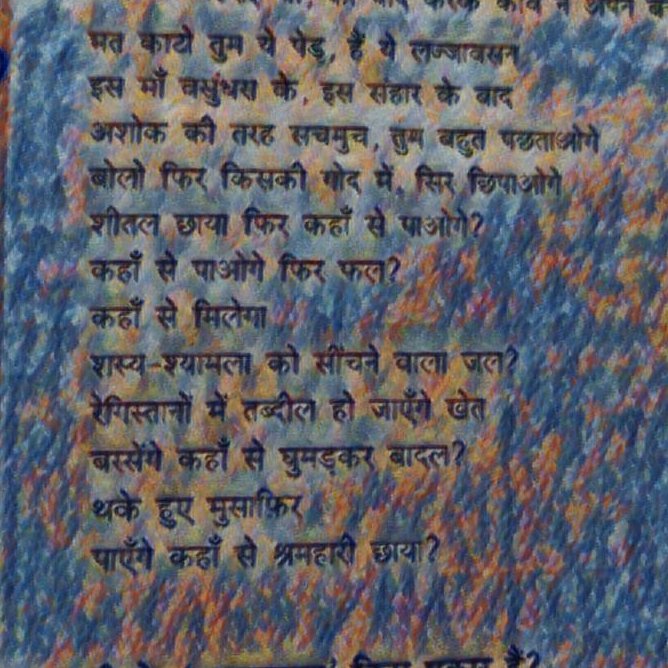 मत काटो तुम ये पेड़, हैं ये लज्जावसन
इस माँ वसुंधरा के, इस संहार के बाद
अशोक की तरह सचमुच, तुम बहुत पछताओगे
बोलो फिर किसकी गोद में, सिर छिपाओगे
शीतल छाया फिर कहाँ से पाओगे?
कहाँ से पाओगे फिर फल?
कहाँ से मिलेगा
शस्य-श्यामला को सींचने वाला जल?
रेगिस्तानों में तब्दील हो जाएँगे खेत
बरसेंगे कहाँ से घुमड़कर बादल?
थके हुए मुसाफ़िर
पाएँगे कहाँ से श्रमहारी छाया?
हैं?